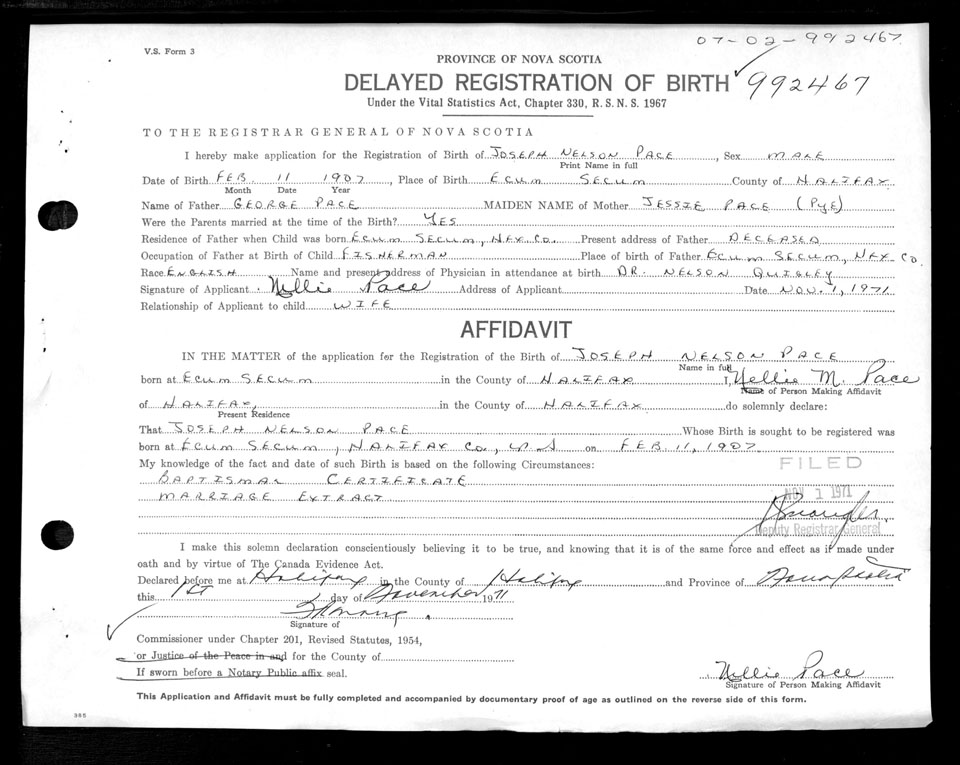 07-02-992467
V.S. Form 3
PROVINCE OF NOVA SCOTIA
DELAYED REGISTRATION OF BIRTH 992467
Under the Vital Statistics Act, Chapter 330, R.S.N.S. 1967
TO THE REGISTRAR GENERAL OF NOVA SCOTIA
I hereby make application for the Registration of Birth of JOSEPH NELSON PACE, Sex MALE
Print Name in full
Date of Birth FEB. 11 1907, Place of Birth ECUM SECUM County of HALIFAX
Month Date Year
Name of Father GEORGE PACE MAIDEN NAME of Mother JESSIE PACE (PYE)
Were the Parents married at the time of the Birth? YES
Residence of Father when Child was born ECUM SECUM, HFX. CO. Present address of Father DECEASED
Occupation of Father at Birth of Child FISHERMAN Place of birth of Father ECUM SECUM, HFX. CO.
Race ENGLISH Name and present address of Physician in attendance at birth DR. NELSON QUIGLEY
Signature of Applicant Nellie Pace Address of Applicant Date NOV. 1, 1971
Relationship of Applicant to child WIFE
AFFIDAVIT
IN THE MATTER of the application for the Registration of the Birth of JOSEPH NELSON PACE
Name in full
born at ECUM SECUM in the County of HALIFAX I, Nellie M. Pace
Name of Person Making Affidavit
of HALIFAX, in the County of HALIFAX do solemnly declare:
Present Residence
That JOSEPH NELSON PACE Whose Birth is sought to be registered was
born at ECUM SECUM, HALIFAX CO., NS on FEB. 11, 1907
My knowledge of the fact and date of such Birth is based on the following Circumstances: FILED
BAPTISMAL CERTIFICATE
MARRIAGE EXTRACT NOV 1 1971
Deputy Registrar General
I make this solemn declaration conscientiously believing it to be true, and knowing that it is of the same force and effect as if made under
oath and by virtue of The Canada Evidence Act.
Declared before me at Halifax in the County of Halifax and Province of Nova Scotia
this 1st day of November 1971
Signature of
Commissioner under Chapter 201, Revised Statutes, 1954,
or Justice of the Peace in and for the County of
If sworn before a Notary Public affix seal.
Nellie Pace
Signature of Person Making Affidavit
This Application and Affidavit must be fully completed and accompanied by documentary proof of age as outlined on the reverse side of this form.